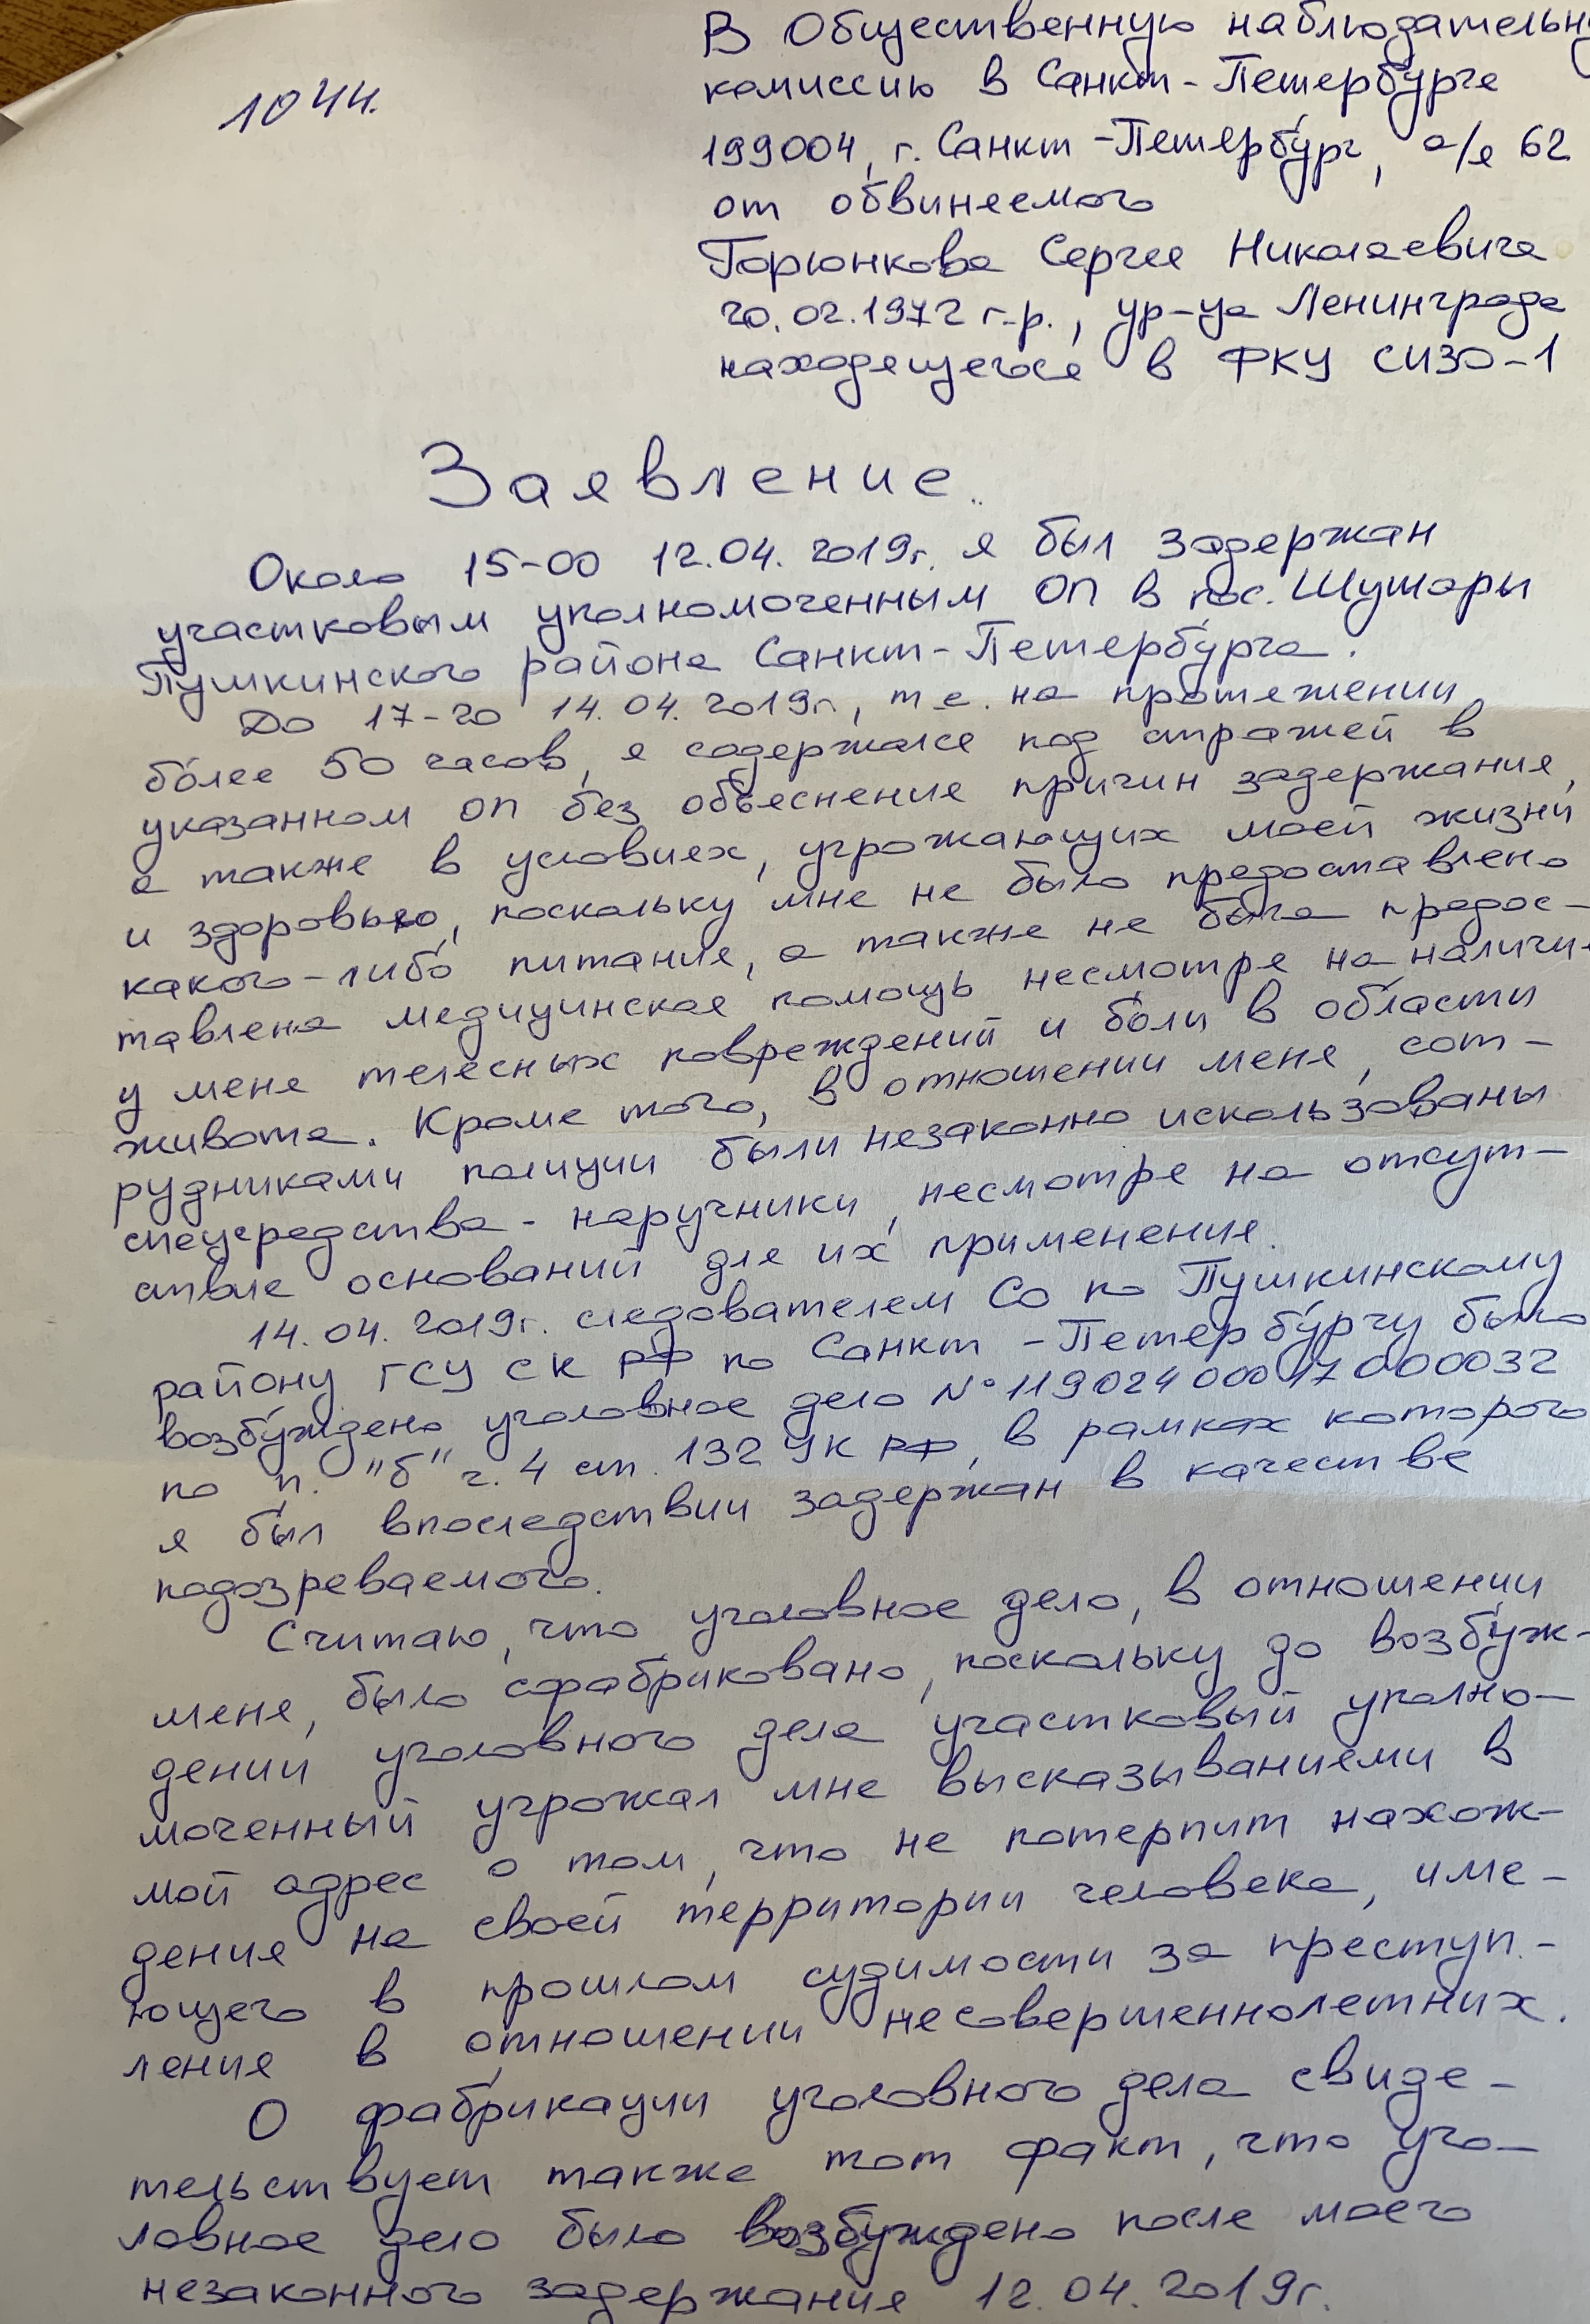 В Общественную наблюдательну
комиссию в Санкт-Петербурге
1044.
199004, г. Санкт-Петербург, а/я 62
от обвиняемого
Горюнкова Сергея Николаевича
20.02.1972 г.р., ур-ца Ленинграда
находящегося в ФКУ СИЗО-1
Заявление.
Около 15-00 12.04.2019г. я был задержан
участковым уполномоченным ОП в пос. Шушары
Пушкинского района Санкт-Петербурга.
До 17-20 14.04.2019г., т.е. на протяжении
более 50 часов, я содержался под стражей в
указанном ОП без объяснения причин задержания,
а также в условиях, угрожающих моей жизни
и здоровью, поскольку мне не было предоставлено
какого-либо питания, а также не была предос-
тавлена медицинская помощь несмотря на наличи
у меня телесных повреждений и боли в области
живота. Кроме того, в отношении меня, сот-
рудниками полиции были незаконно использованы
спецсредства - наручники, несмотря на отсут-
ствие оснований для их применения.
14.04.2019г. следователем СО по Пушкинскому
району ГСУ СК РФ по Санкт-Петербургу было
возбуждено уголовное дело №11902400017000032
по п. "б" ч. 4 ст. 132 УК РФ, в рамках которого
я был впоследствии задержан в качестве
подозреваемого.
Считаю, что уголовное дело, в отношении
меня, было сфабриковано, поскольку до возбуж-
дений уголовного дела участковый уполно-
моченный угрожал мне высказываниями в
мой адрес о том, что не потерпит нахож-
дения на своей территории человека, име-
ющего в прошлом судимости за преступ-
ления в отношении несовершеннолетних.
О фабрикации уголовного дела свиде-
тельствует также тот факт, что уго-
ловное дело было возбуждено после моего
незаконного задержания 12.04.2019г.